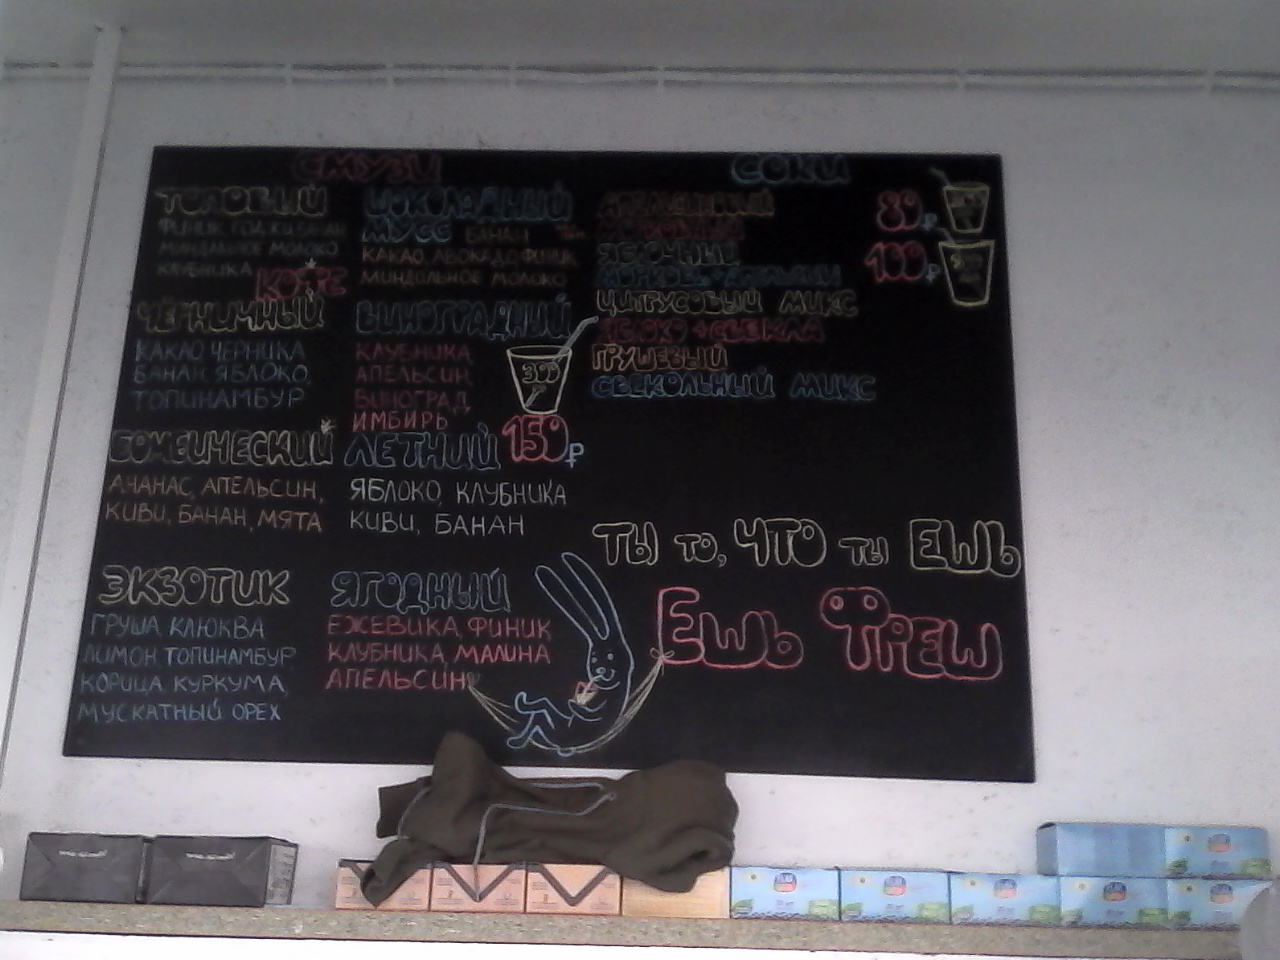 СМУЗИ
ТОПОВЫЙ
ФИНИК, ГОДЖИ, БАНАН
МИНДАЛЬНОЕ МОЛОКО
КЛУБНИКА
КОФЕ
ЧЁРНИЧНЫЙ
КАКАО ЧЕРНИКА
БАНАН ЯБЛОКО,
ТОПИНАМБУР
БОМБИЧЕСКИЙ
АНАНАС, АПЕЛЬСИН,
КИВИ, БАНАН, МЯТА
ЭКЗОТИК
ГРУША, КЛЮКВА
ЛИМОН, ТОПИНАМБУР
КОРИЦА, КУРКУМА,
МУСКАТНЫЙ ОРЕХ
ШОКОЛАДНЫЙ
МУСС БАНАН
КАКАО, АВОКАДО, ФИНИК
МИНДАЛЬНОЕ МОЛОКО
ВИНОГРАДНЫЙ
КЛУБНИКА
АПЕЛЬСИН,
ВИНОГРАД
ИМБИРЬ
300
150₽
ЛЕТНИЙ
ЯБЛОКО, КЛУБНИКА
КИВИ, БАНАН
ЯГОДНЫЙ
ЕЖЕВИКА, ФИНИК
КЛУБНИКА, МАЛИНА
АПЕЛЬСИН
СОКИ
АПЕЛЬСИНОВЫЙ
МОРКОВНЫЙ
ЯБЛОЧНЫЙ
МОРКОВЬ+АПЕЛЬСИН
ЦИТРУСОВЫЙ МИКС
ЯБЛОКО+СВЕКЛА
ГРУШЕВЫЙ
СВЕКОЛЬНЫЙ МИКС
80₽
100₽
ТЫ ТО, ЧТО ТЫ ЕШЬ
ЕШЬ ФРЕШ